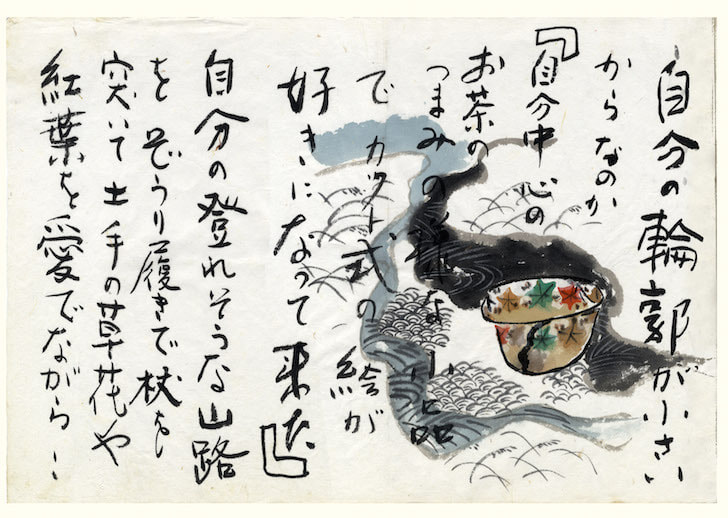 自分の輪郭が小さい
からなのか
『自分中心の
お茶の
つまみの様な小品
でカット式の絵が
好きになって来た』
自分の登れそうな山路
を ぞうり履きで杖を
突いて土手の草花や
紅葉を愛でながら…